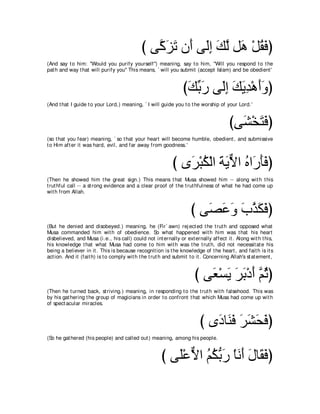 (فَقُلْ هَل لَّكَ إِلَى أَن تَزَكَّى)
(And say to him: "Would you purify yourself") meaning, say to him, "Will you respond to the
path and way that will purify you'' This means, `will you submit (accept Islam) and be obedient'
(وَأَهْدِيَكَ إِلَى رَبِّكَ)
(And that I guide to your Lord,) meaning, `I will guide you to the worship of your Lord.'
(فَتَخْشَى)
(so that you fear) meaning, `so that your heart will become humble, obedient, and submissive
to Him after it was hard, evil, and far away from goodness.'
(فَأَرَاهُ الاٌّيَةَ الْكُبْرَى)
(Then he showed him the great sign.) This means that Musa showed him -- along with this
truthful call -- a strong evidence and a clear proof of the truthfulness of what he had come up
with from Allah.
(فَكَذَّبَ وَعَصَى)
(But he denied and disobeyed.) meaning, he (Fir`awn) rejected the truth and opposed what
Musa commanded him with of obedience. So what happened with him was that his heart
disbelieved, and Musa (i.e., his call) could not internally or externally affect it. Along with this,
his knowledge that what Musa had come to him with was the truth, did not necessitate his
being a believer in it. This is because recognition is the knowledge of the heart, and faith is its
action. And it (faith) is to comply with the truth and submit to it. Concerning Allah's statement,
(ثُمَّ أَدْبَرَ يَسْعَى)
(Then he turned back, striving.) meaning, in responding to the truth with falsehood. This was
by his gathering the group of magicians in order to confront that which Musa had come up with
of spectacular miracles.
(فَحَشَرَ فَنَادَى)
(So he gathered (his people) and called out) meaning, among his people.
(فَقَالَ أَنَاْ رَبُّكُمُ الاٌّعْلَى)